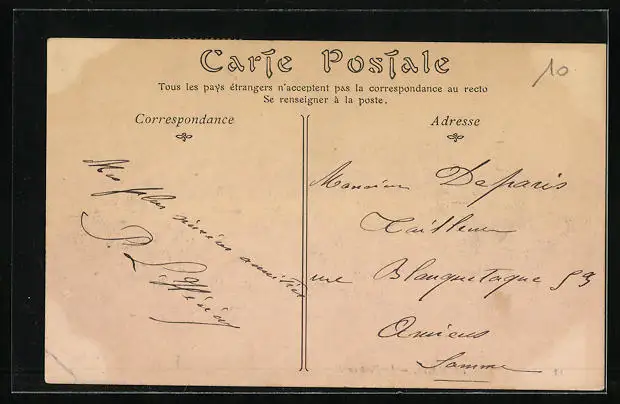 Carte Postale
Tous les pays étrangers n'acceptent pas la correspondance au recto
Se renseigner à la poste.
10
Correspondance
Mes plus sincères amitiés
Adresse
Monsieur Deparis
Tailleur
rue Blanquetaque 53
Amiens
Somme